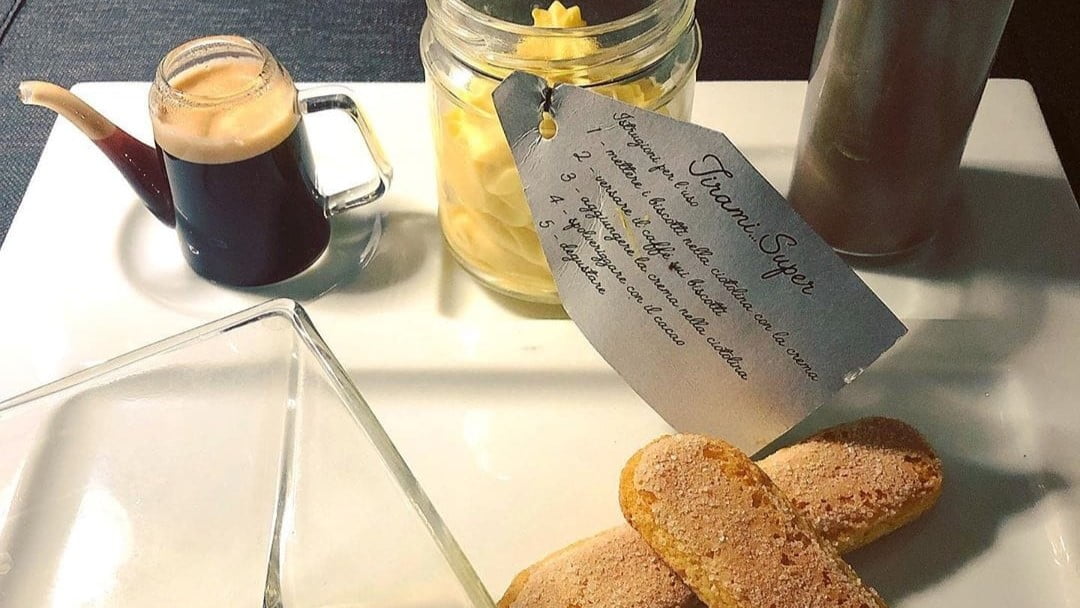 Tirami...Super
Istruzioni per l'uso
1 - mettere i biscotti nella ciotolina con la crema
2 - versare il caffè sui biscotti
3 - aggiungere la crema nella ciotolina
4 - spolverizzare con il cacao
5 - degustare